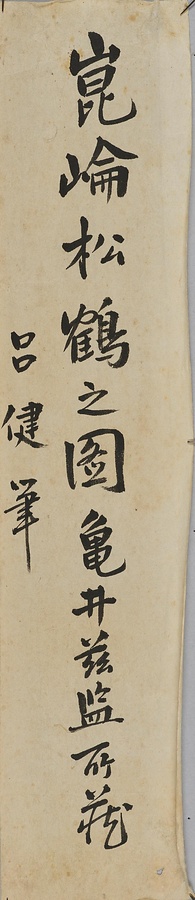 崑崘松鶴之图亀井玆监所蔵
呂健筆